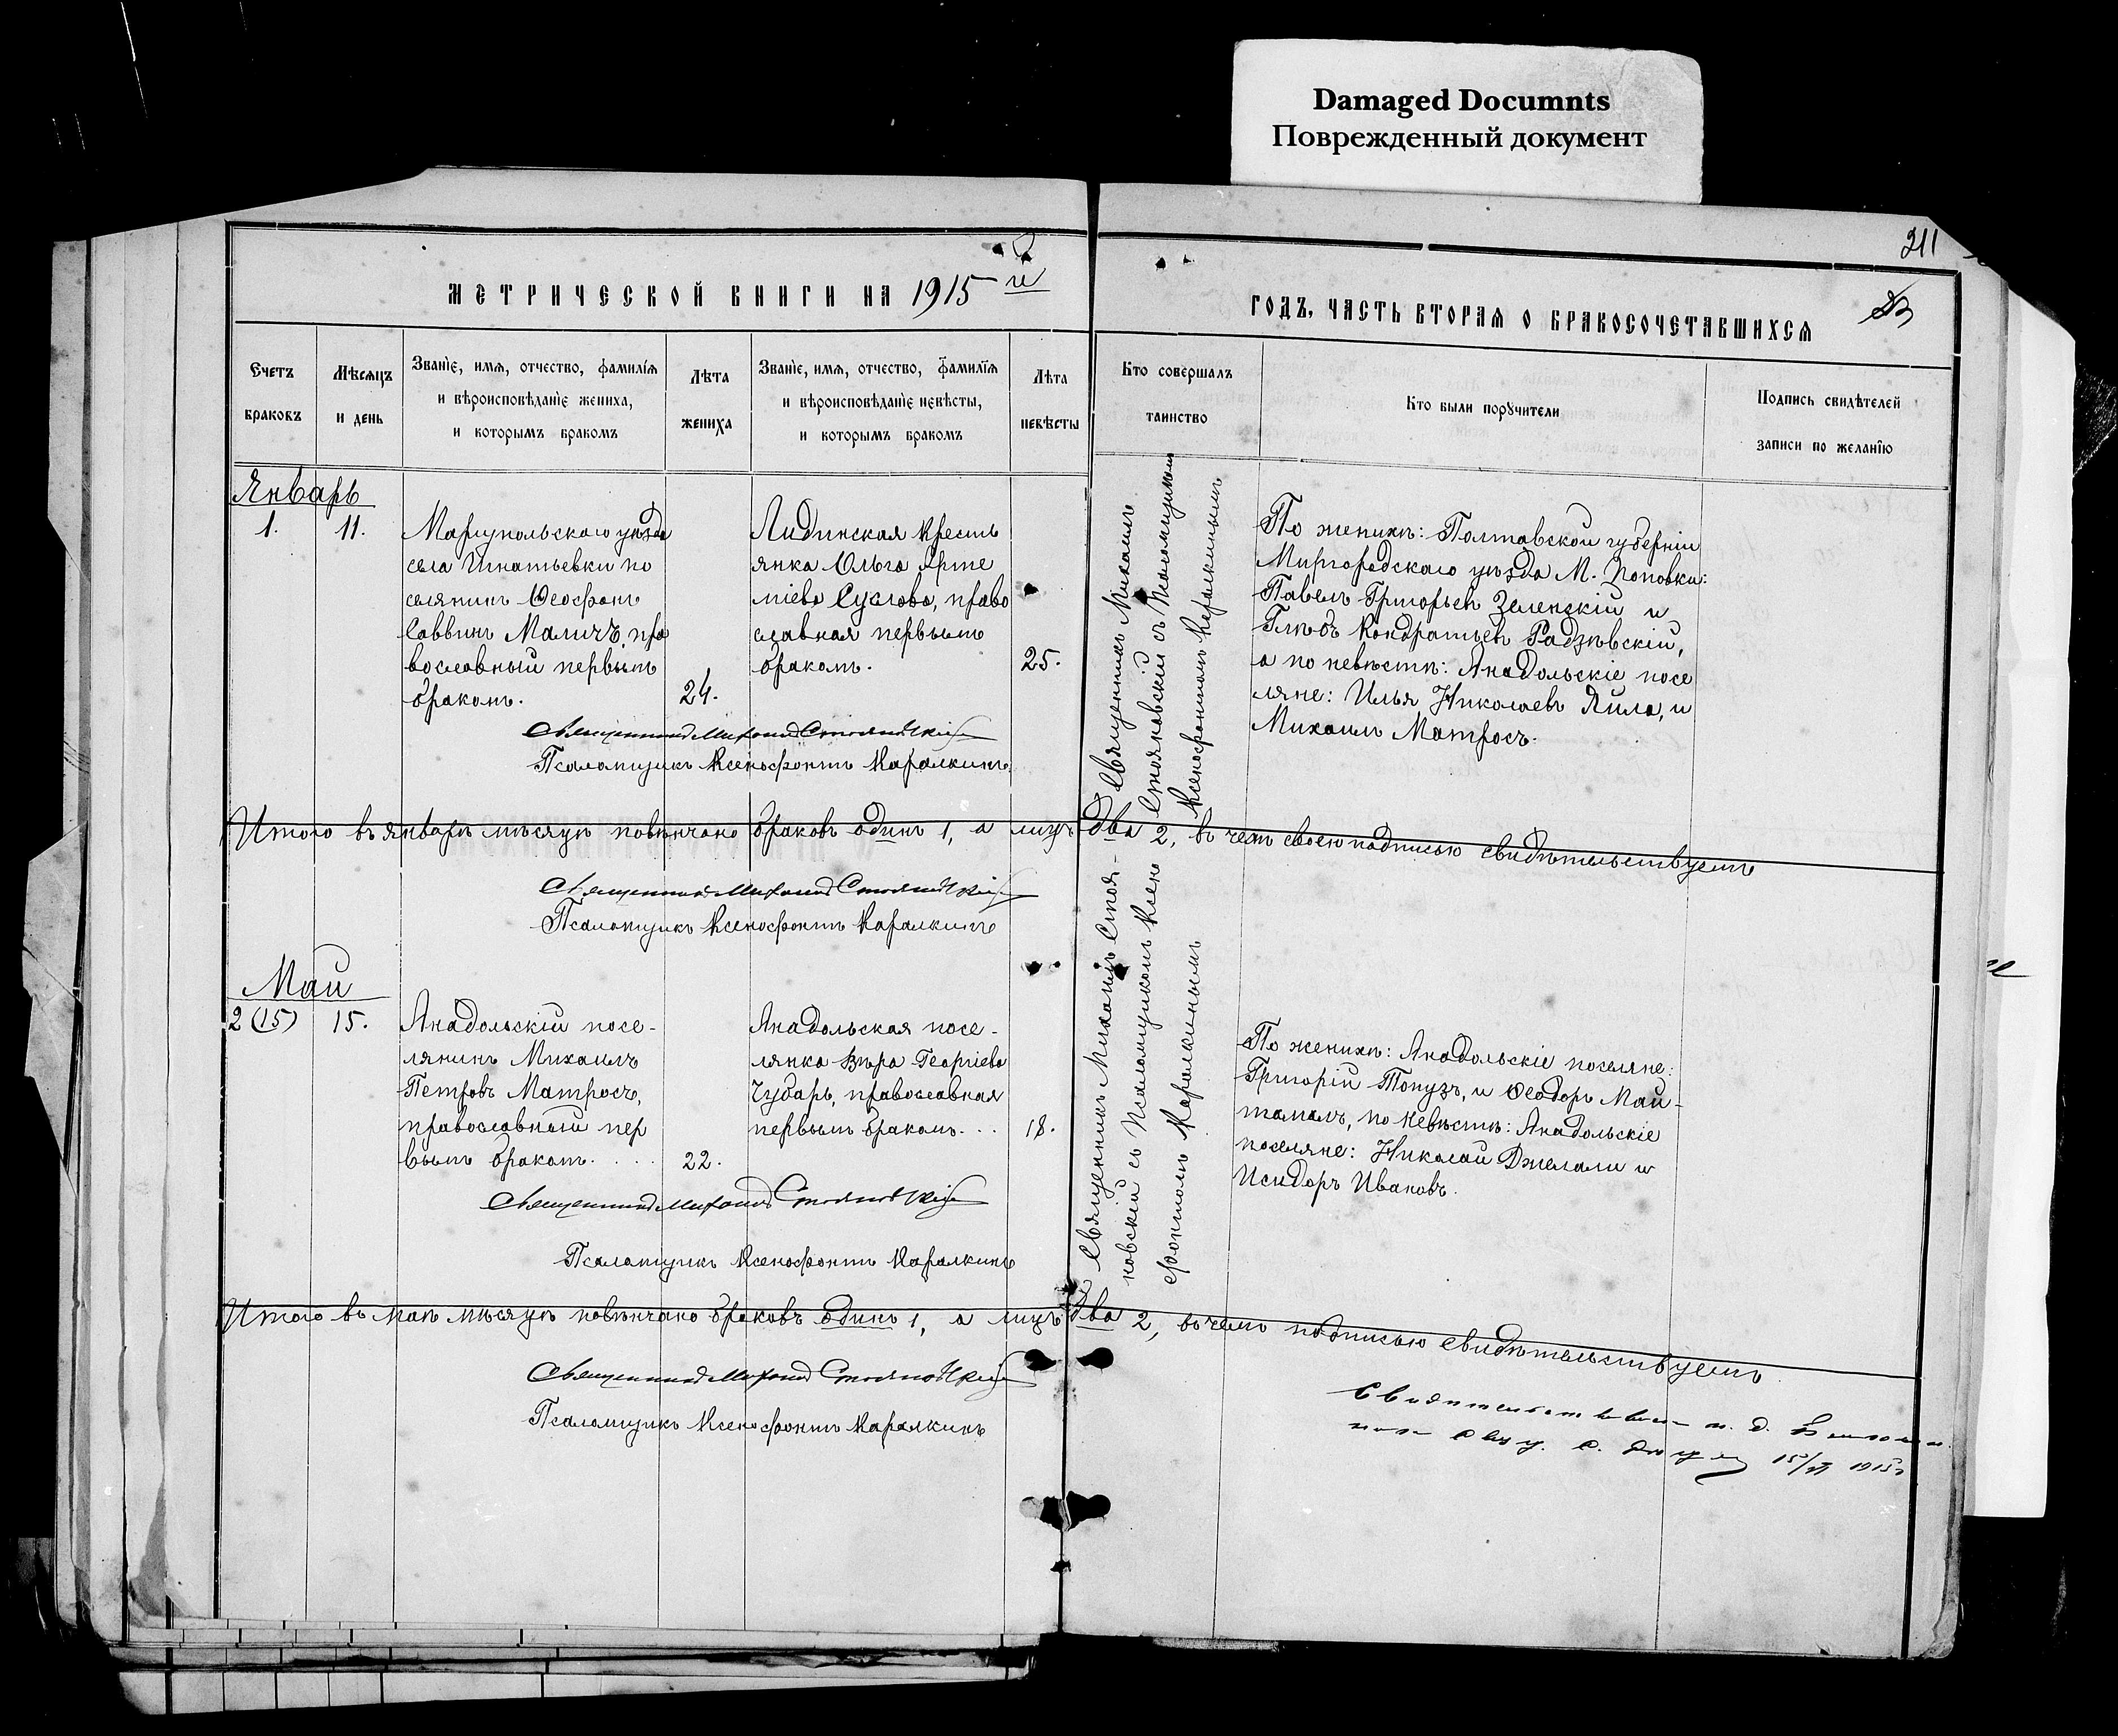 Damaged Documnts
Поврежденный документ
211
МЕТРИЧЕСКОЙ КНИГИ НА 1915 й
ГОДЪ, ЧАСТЬ ВТОРАЯ О БРАКОСОЧЕТАВШИХСЯ
Счетъ
браковъ
Мѣсяцъ
и день
Званіе, имя, отчество, фамилія
и вѣроисповѣданіе жениха,
и которымъ бракомъ
Лѣта
жениха
Званіе, имя, отчество, фамилія
и вѣроисповѣданіе невѣсты,
и которымъ бракомъ
Лѣта
невѣсты
Кто совершалъ
таинство
Кто были поручители
Подпись свидѣтелей
записи по желанію
Январь
1.
11.
Маріупольскаго уѣзда
села Игнатьевки по
селянинъ Ѳеофанъ
Саввинъ Маличъ, пра
вославный первымъ
бракомъ.
24.
Лидинская кресть
янка Ольга Арте
міева Суслова, право
славная первымъ
бракомъ.
25.
Священникъ Михаилъ
Стояновскій съ Псаломщикомъ
Ксенофонтомъ Каралкинымъ
По женихѣ: Полтавской губерніи
Миргородскаго уѣзда М. Поповки:
Павелъ Григорьевъ Зеленскій и
Глѣбъ Кондратьевъ Радзѣвскій,
а по невѣстѣ: Анадольскіе посе
ляне: Илья Николаевъ Яйла, и
Михаилъ Матросъ.
Священникъ Михаилъ Стояновскій
Псаломщикъ Ксенофонтъ Каралкинъ
Итого въ январѣ мѣсяцѣ повѣнчано браковъ одинъ 1, а лицъ два 2, въ чемъ своею подписью свидѣтельствуемъ
Священникъ Михаилъ Стояновскій
Псаломщикъ Ксенофонтъ Каралкинъ
Май
2 (15)
15.
Анадольскій посе-
лянинъ Михаилъ
Петровъ Матросъ,
православный пер
вымъ бракомъ. . . .
22.
Анадольская посе-
лянка Вѣра Георгіева
Чубарь, православная
первымъ бракомъ. . .
18.
Священникъ Михаилъ Стоя-
новскій съ Псаломщикомъ Ксено
фонтомъ Каралкинымъ
По женихѣ: Анадольскіе поселяне:
Григорій Топузъ, и Ѳеодоръ Май-
тамалъ, по невѣстѣ: Анадольскіе
поселяне: Николай Джелали и
Исидоръ Ивановъ.
Священникъ Михаилъ Стояновскій
Псаломщикъ Ксенофонтъ Каралкинъ
Итого въ маѣ мѣсяцѣ повѣнчано браковъ одинъ 1, а лицъ два 2, въ чемъ подписью свидѣтельствуемъ
Священникъ Михаилъ Стояновскій
Псаломщикъ Ксенофонтъ Каралкинъ
и. д.
15/VI 1915 г